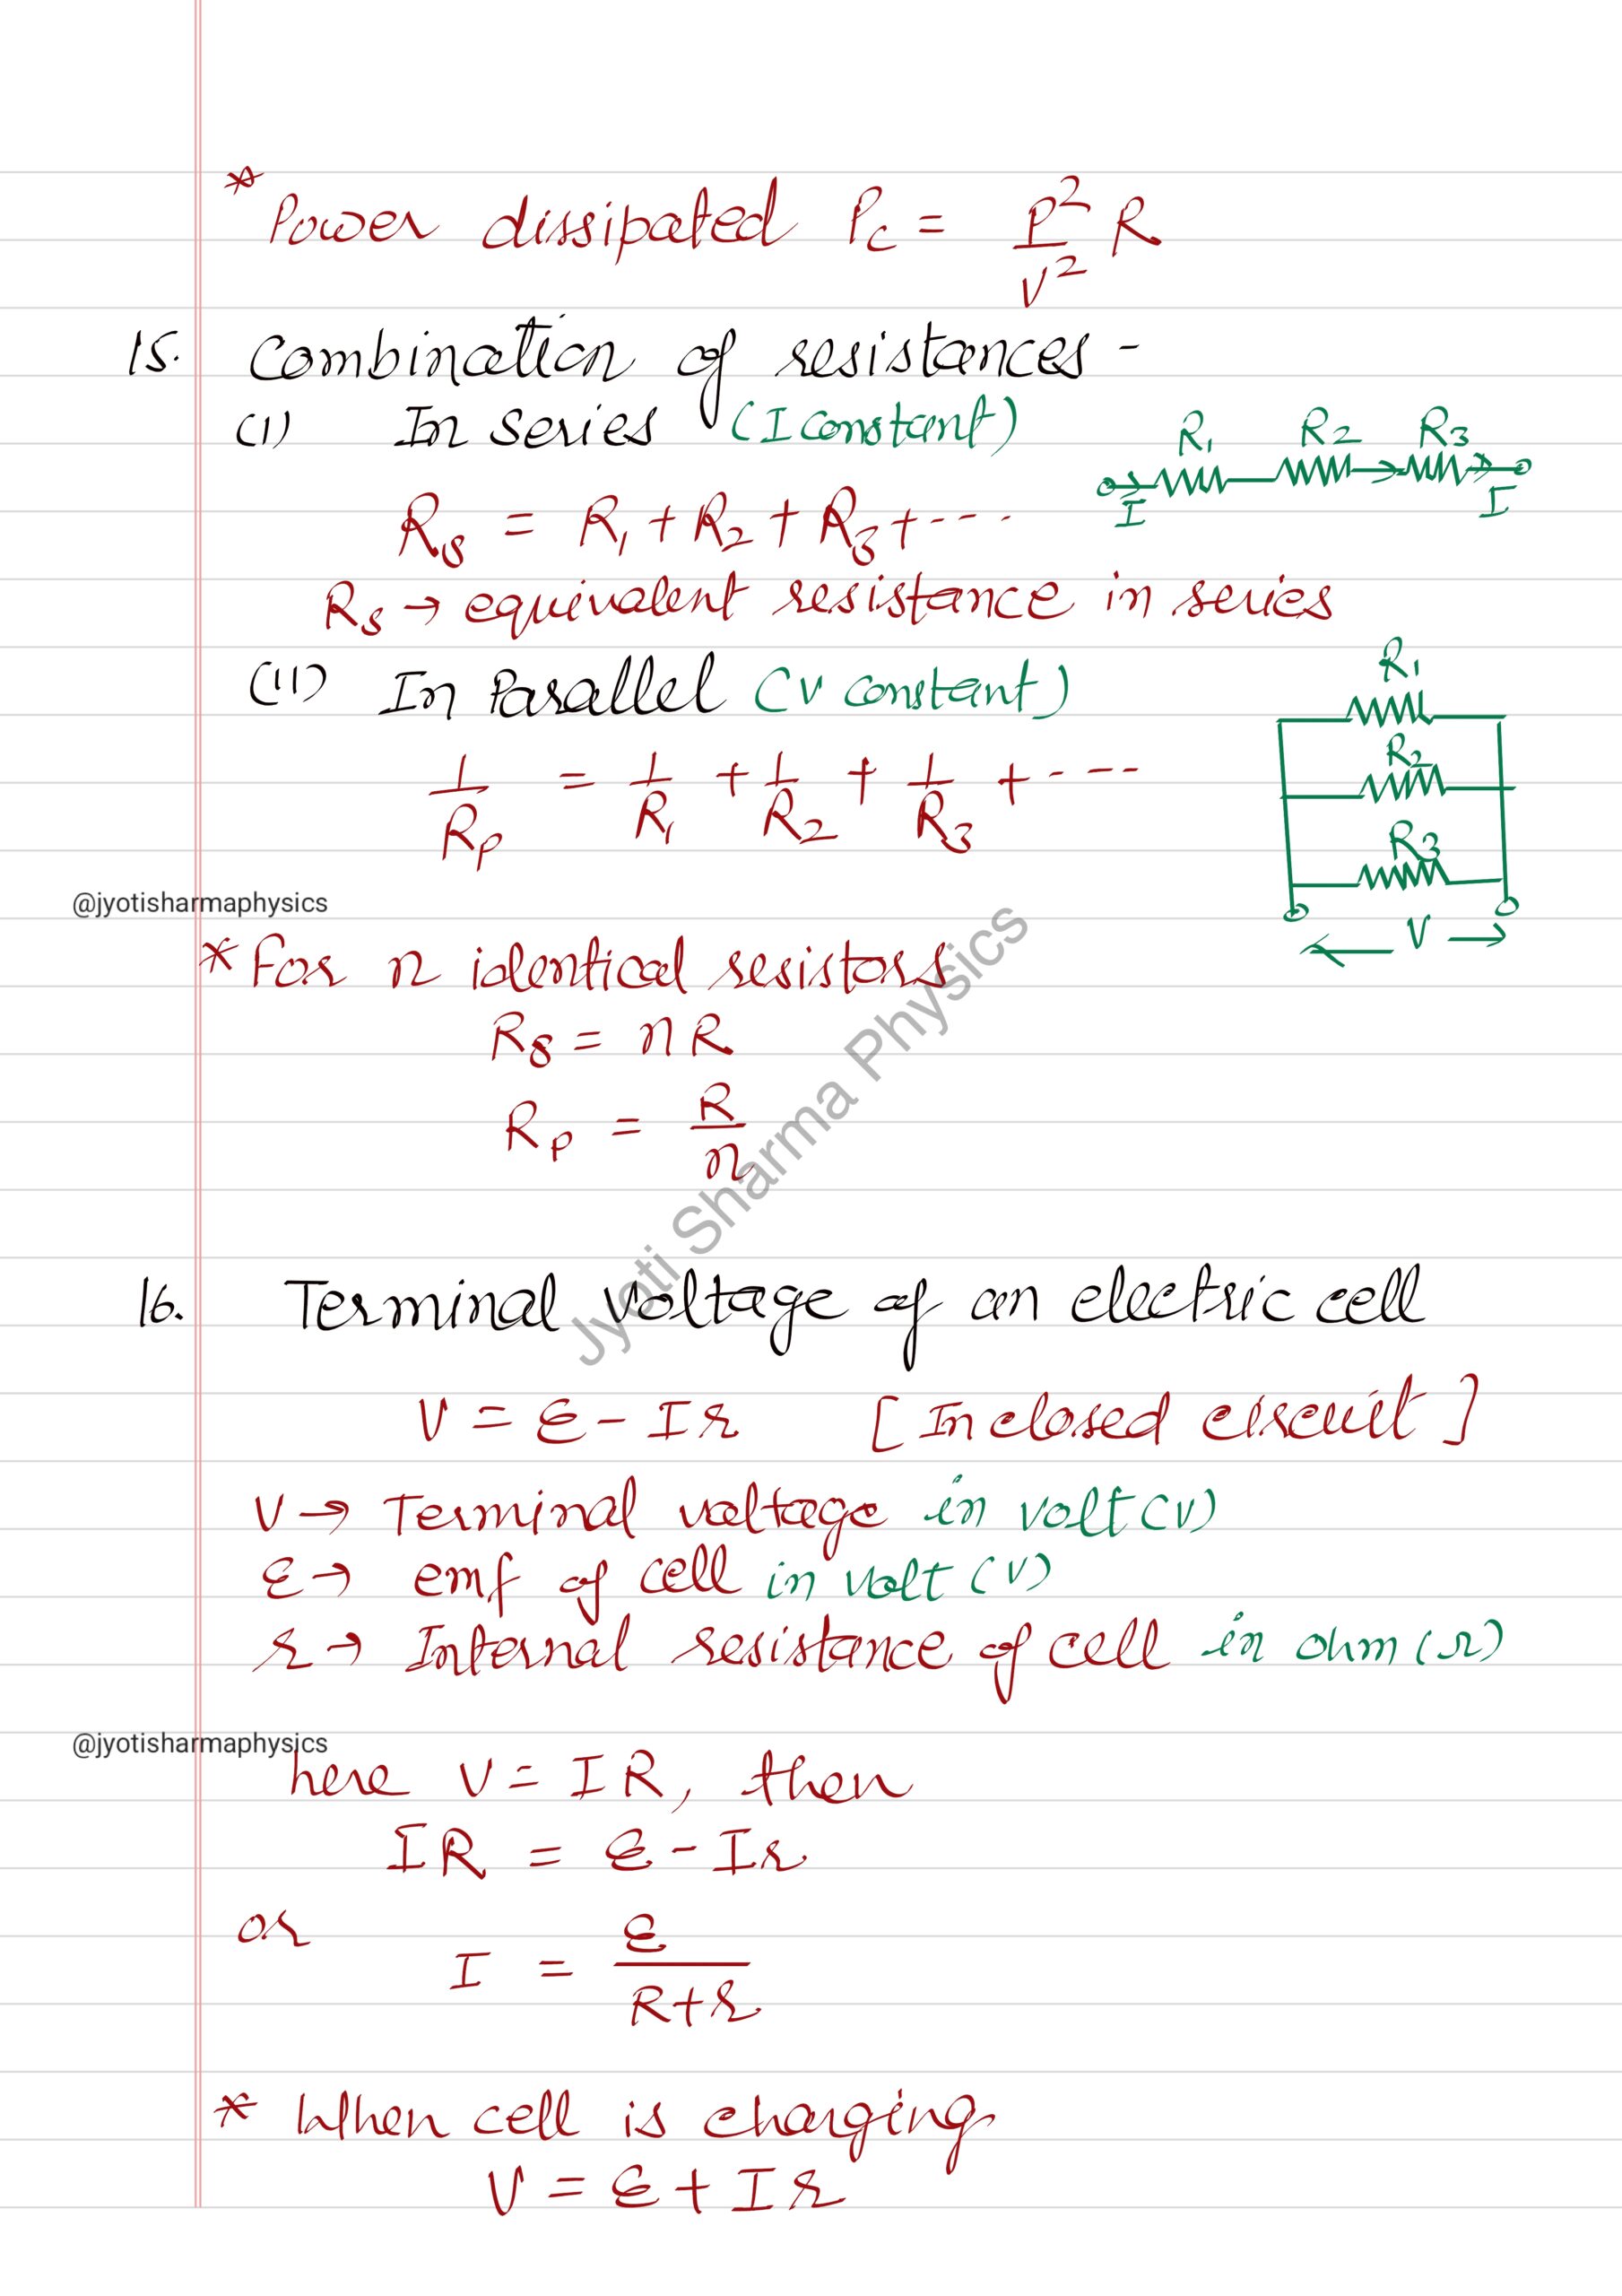 * Power dissipated Pc = P²/V² R
15. Combination of resistances -
(i) In series (I constant)
R1 R2 R3
I I
Rs = R1 + R2 + R3 + ----
Rs → equivalent resistance in series
(ii) In Parallel (V constant)
1/Rp = 1/R1 + 1/R2 + 1/R3 + ----
R1
R2
R3
V
@jyotisharmaphysics
* For n identical resistors
Rs = nR
Rp = R/n
Jyoti Sharma Physics
16. Terminal voltage of an electric cell
V = ε - Ir [In closed circuit]
V → Terminal voltage in volt (V)
ε → emf of cell in volt (V)
r → Internal resistance of cell in ohm (Ω)
@jyotisharmaphysics
here V = IR, then
IR = ε - Ir
or I = ε/R+r
* When cell is charging
V = ε + Ir